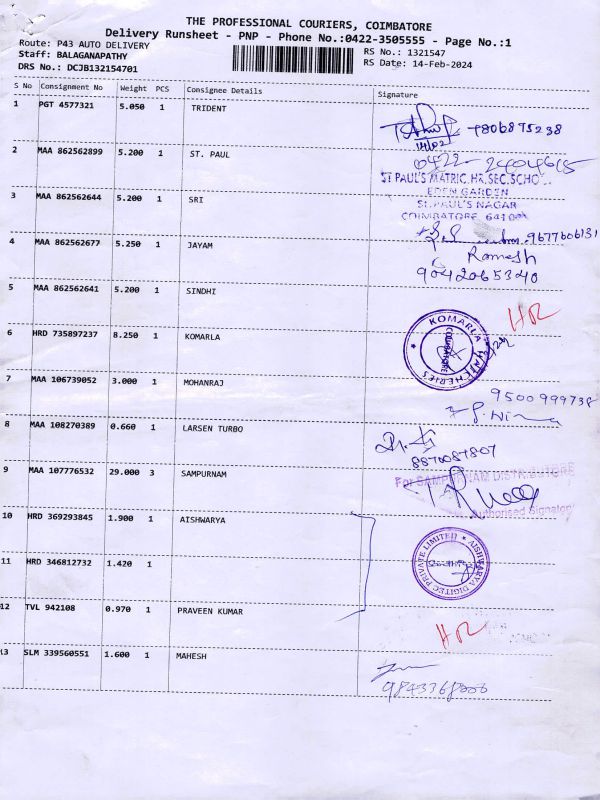 THE PROFESSIONAL COURIERS, COIMBATORE
Delivery Runsheet - PNP - Phone No.:0422-3505555 - Page No.:1
Route: P43 AUTO DELIVERY
Staff: BALAGANAPATHY
DRS No.: DCJB132154701
RS No.: 1321547
RS Date: 14-Feb-2024
S No Consignment No Weight PCS Consignee Details Signature
1 PGT 4577321 5.050 1 TRIDENT
7806875238
2 MAA 862562899 5.200 1 ST. PAUL
0422- 2404615
ST PAUL'S MATRIC.HR.SEC.SCHO
EDEN GARDEN
ST.PAUL'S NAGAR
COIMBATORE 641001
3 MAA 862562644 5.200 1 SRI
9677606131
4 MAA 862562677 5.250 1 JAYAM
Ramesh
9042065340
5 MAA 862562641 5.200 1 SINDHI
HR
6 HRD 735897237 8.250 1 KOMARLA
KOMARLA HATCHERIES
COIMBATORE
7 MAA 106739052 3.000 1 MOHANRAJ
9500999738
8 MAA 108270389 0.660 1 LARSEN TURBO
8870087807
9 MAA 107776532 29.000 3 SAMPURNAM
For SAMPURNAM DISTRIBUTORS
Authorised Signatory
10 HRD 369293845 1.900 1 AISHWARYA
11 HRD 346812732 1.420 1
AISHWARYA DIGITEC PRIVATE LIMITED
12 TVL 942108 0.970 1 PRAVEEN KUMAR
HR
13 SLM 339560551 1.600 1 MAHESH